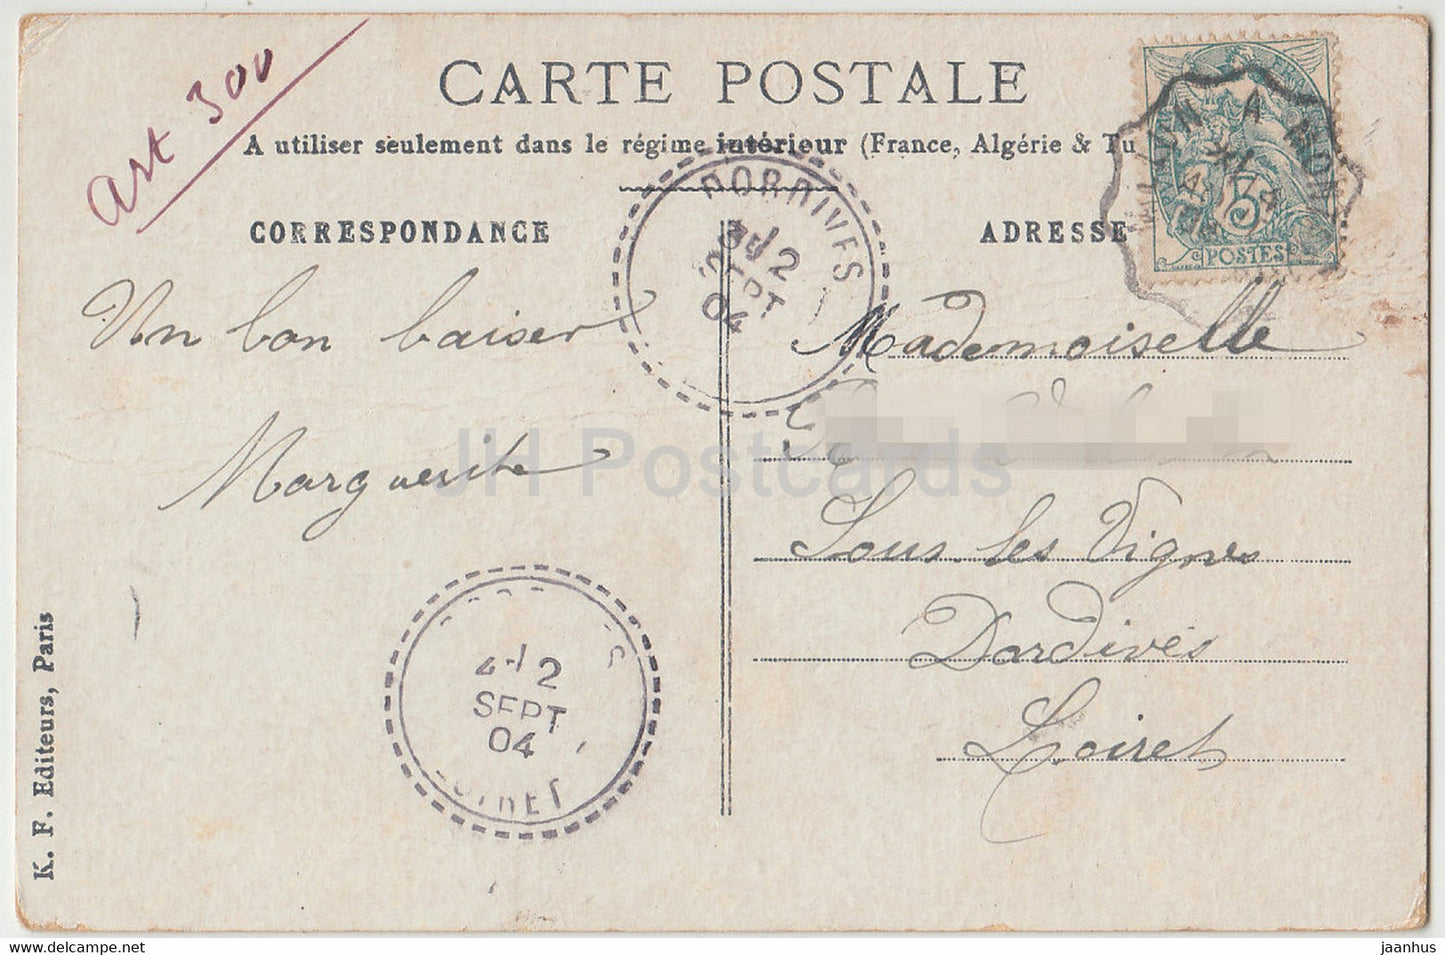 art 300
CARTE POSTALE
A utiliser seulement dans le régime intérieur (France, Algérie & Tu
CORRESPONDANCE
ADRESSE
POSTES
DORDIVES
2
SEPT
04
Un bon baiser
Marguerite
Mademoiselle
Sous les Vignes
Dordives
Loiret
2
SEPT
04
K. F. Editeurs, Paris
JH Postcards
jaanhus